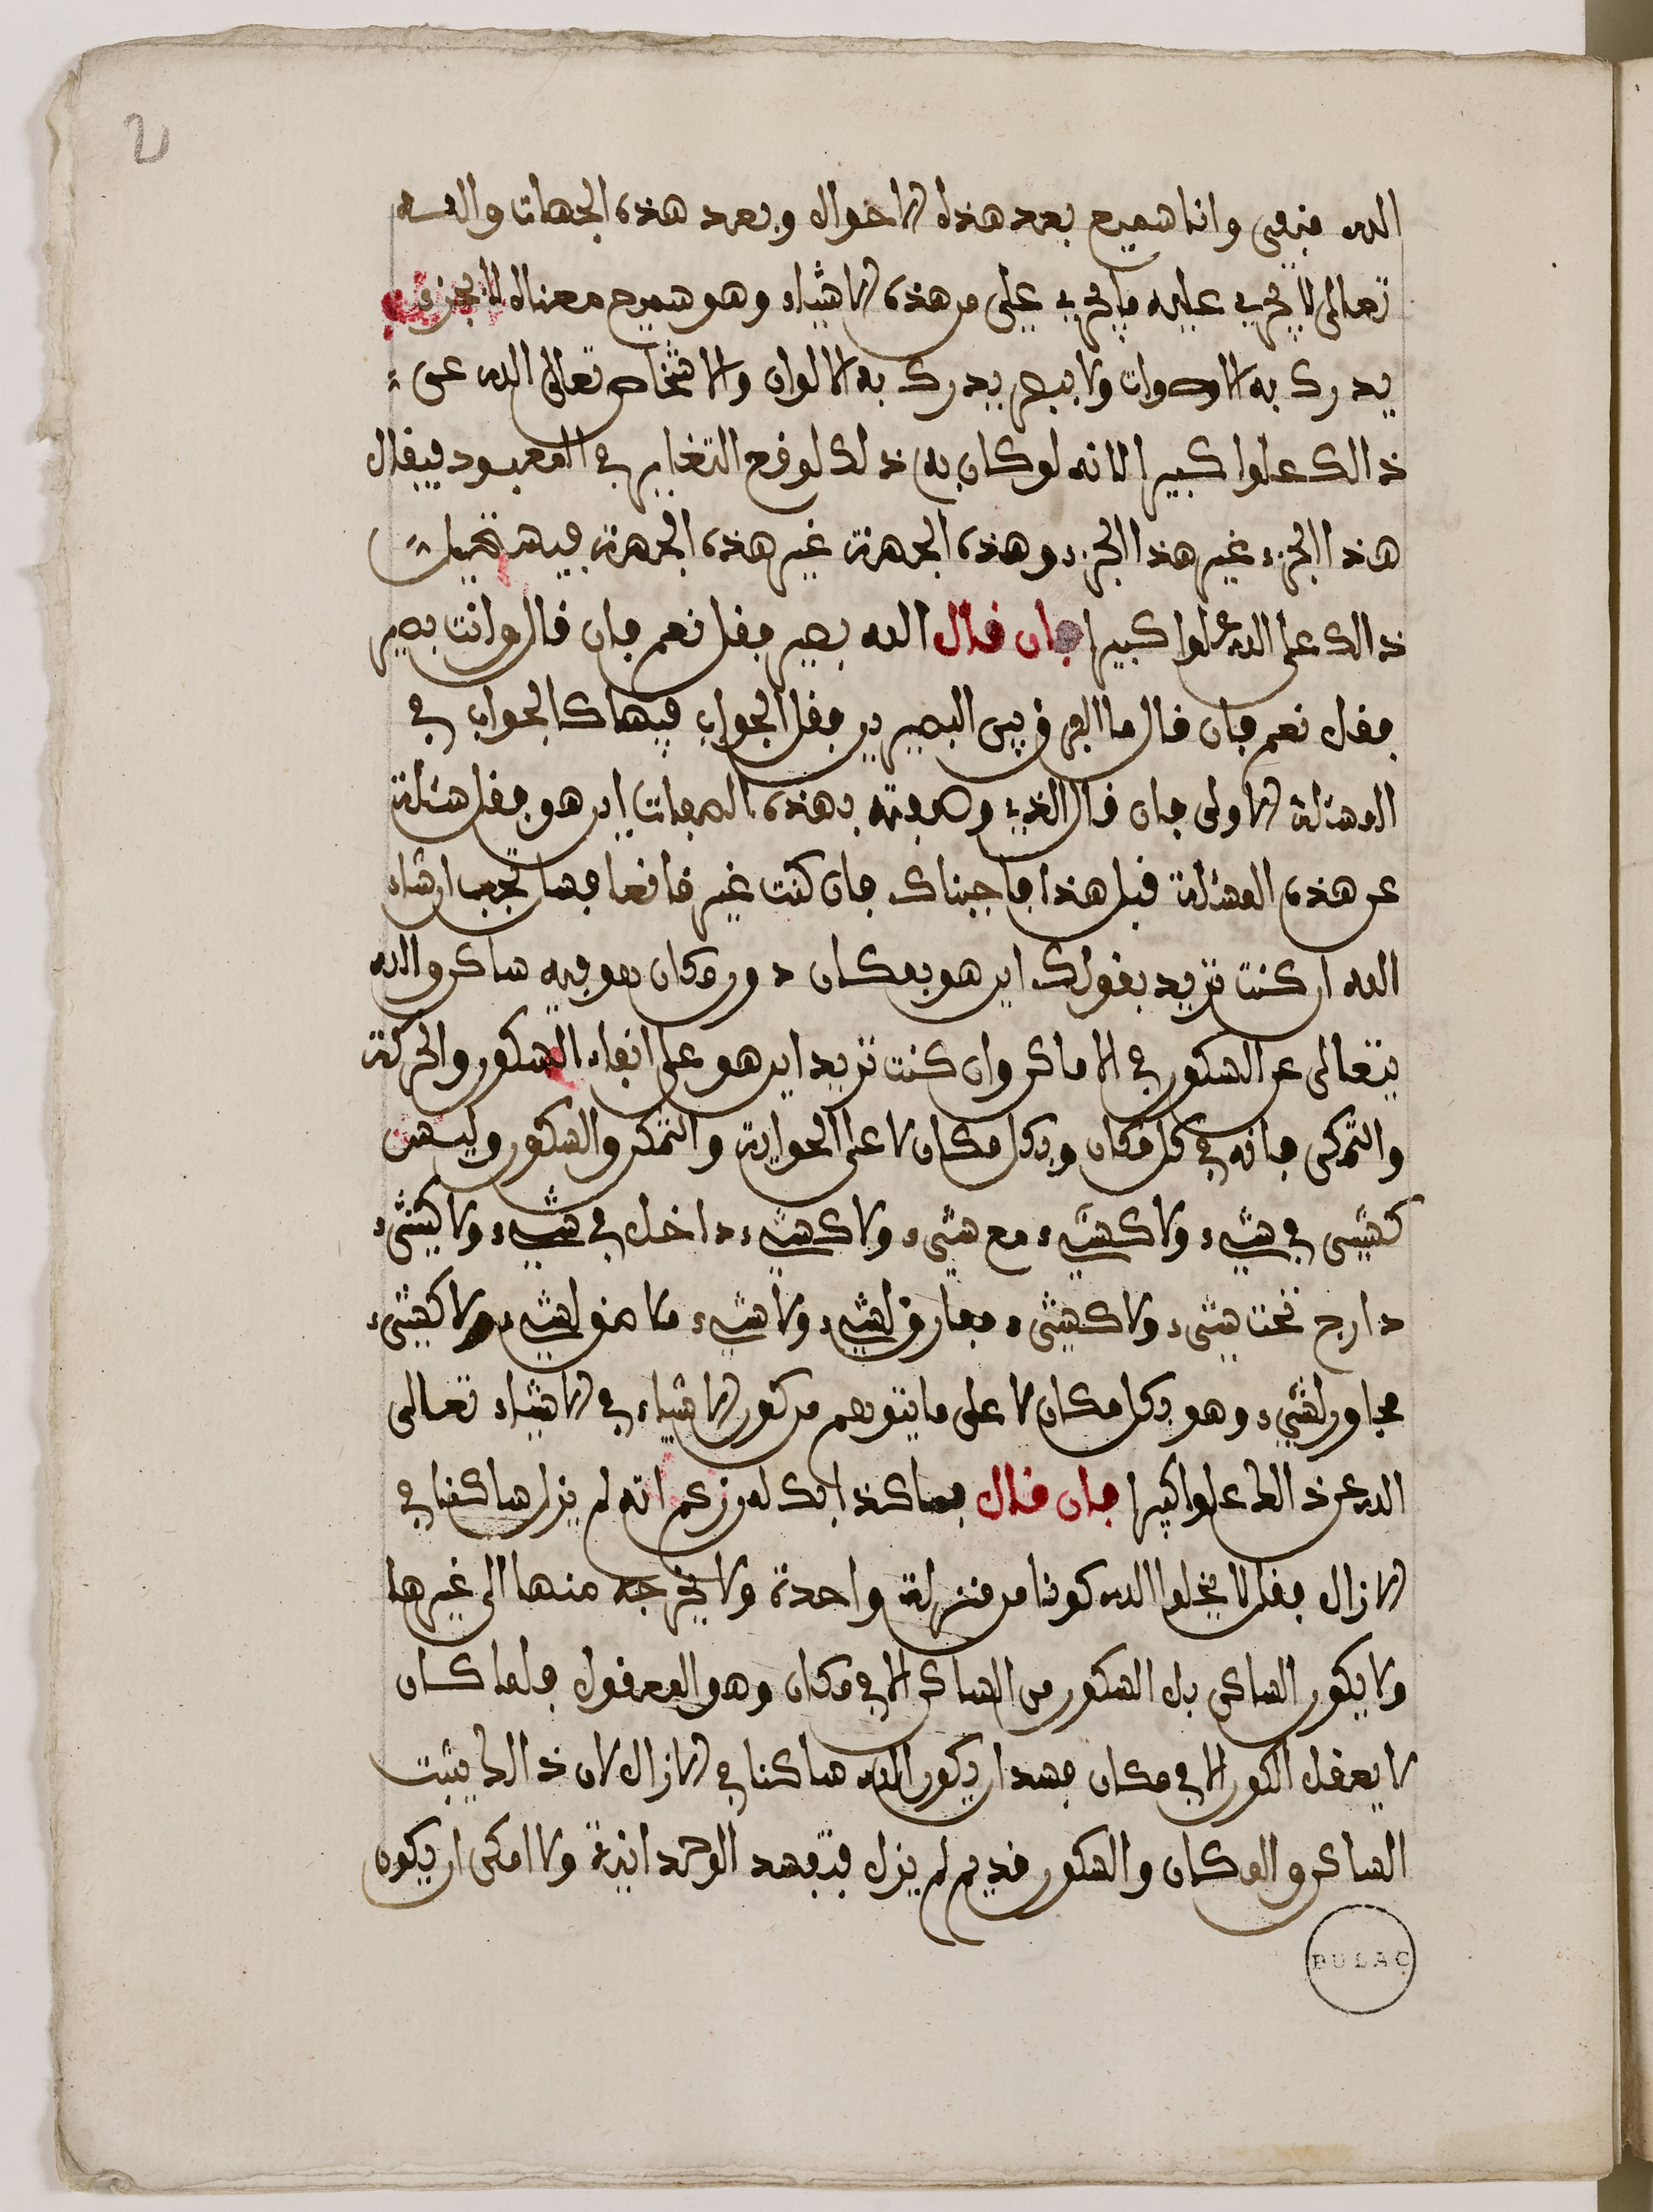 2
الله مني وانا سميع بعد هذه الاحوال وبعد هذه الجهات والله
تعالى لا يجري عليه ما يجري علي من هذه الاشياء وهو سميع معناه لا بجزء فيه
يدرك به الاصوات ولا ببصر يدرك به الالوان والاشخاص تعالى الله عن
ذالك علوا كبيرا لانه لو كان به ذلك لوقع التغاير في المعبود فيقال
هذا الجزء غير هذا الجزء وهذه الجهة غير هذه الجهة فيستحيل
ذالك على الله علوا كبيرا فان قال الله بصير فقل نعم فان قال وانت بصير
فقل نعم فان قال ما الفرق بين البصيرين فقل الجواب فيها كالجواب في
المسئلة الاولى فان قال الذي وصفته بهذه الصفات اين هو فقل سئلت
عن هذه المسئلة قبل هذا فاجبناك فان كنت غير قانعا فسنجيب ان شاء
الله ان كنت تريد بقولك اين هو بمكان دون مكان هو فيه ساكن والله
يتعالى عن السكون في الاماكن وان كنت تريد اين هو على انفاء السكون والحركة
والتمكن فانه في كل مكان وبكل مكان لا على الحواية والتمكن والسكون وليس
كشيء في شيء ولا كشيء مع شيء ولا كشيء داخل في شيء ولا كشيء
دارج تحت شيء ولا كشيء مفارق لشيء ولا شيء ملامس لشيء ولا كشيء
مجاور لشيء وهو بكل مكان لا على ما يتوهم من كون الاشياء في الاشياء تعالى
الله عن ذالك علوا كبيرا فان قال فما كذابك لمن زعم انه لم يزل ساكنا في
الازال فقل لا يخلوا الله كونا من منزلة واحدة ولا يخرجه منها الى غيرها
ولا يكون الساكن بل السكون من الساكن الا في مكان وهو المعقول فلما كان
لا يعقل الكون الا في مكان فسد ان يكون الله ساكنا في الازال لان ذالك يثبت
الساكن والمكان والسكون قديم لم يزل فتفسد الوحدانية ولا امكن ان يكون
BULAC